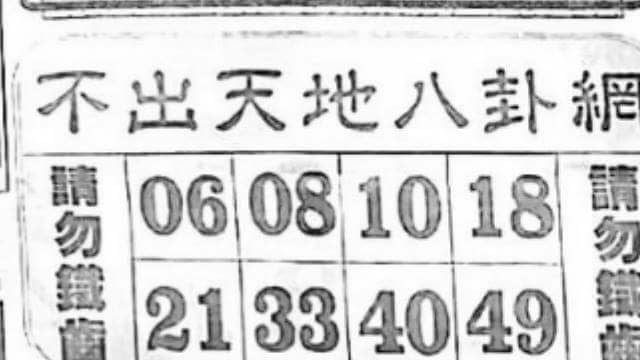 不出天地八卦網
請勿鐵齒
06 08 10 18
21 33 40 49
請勿鐵齒